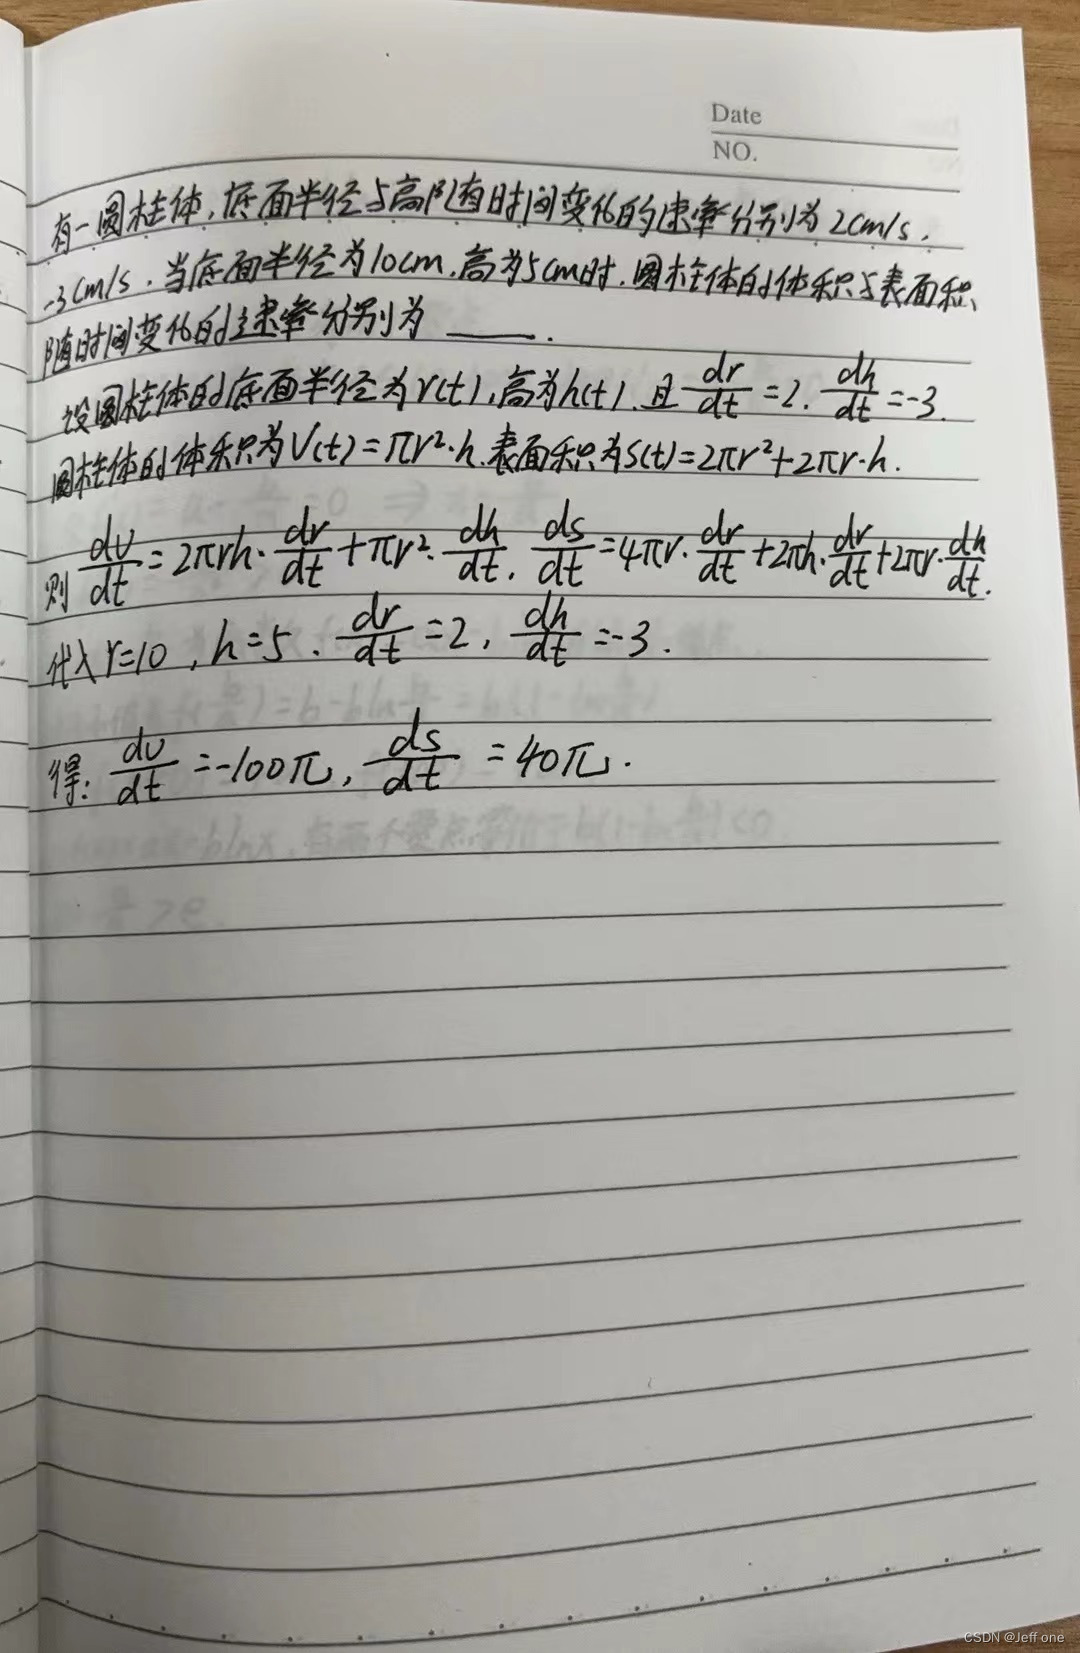 Date
NO.
有一圆柱体,底面半径与高随时间变化的速率分别为2cm/s,
-3cm/s.当底面半径为10cm,高为5cm时,圆柱体的体积与表面积
随时间变化的速率分别为____.
设圆柱体的底面半径为r(t),高为h(t).且dr/dt=2.dh/dt=-3.
圆柱体的体积为V(t)=πr²·h.表面积为S(t)=2πr²+2πr·h.
则dv/dt=2πrh·dr/dt+πr²·dh/dt.ds/dt=4πr·dr/dt+2πh·dr/dt+2πr·dh/dt.
代入r=10,h=5.dr/dt=2,dh/dt=-3.
得:dv/dt=-100π,ds/dt=40π.
CSDN @Jeff one